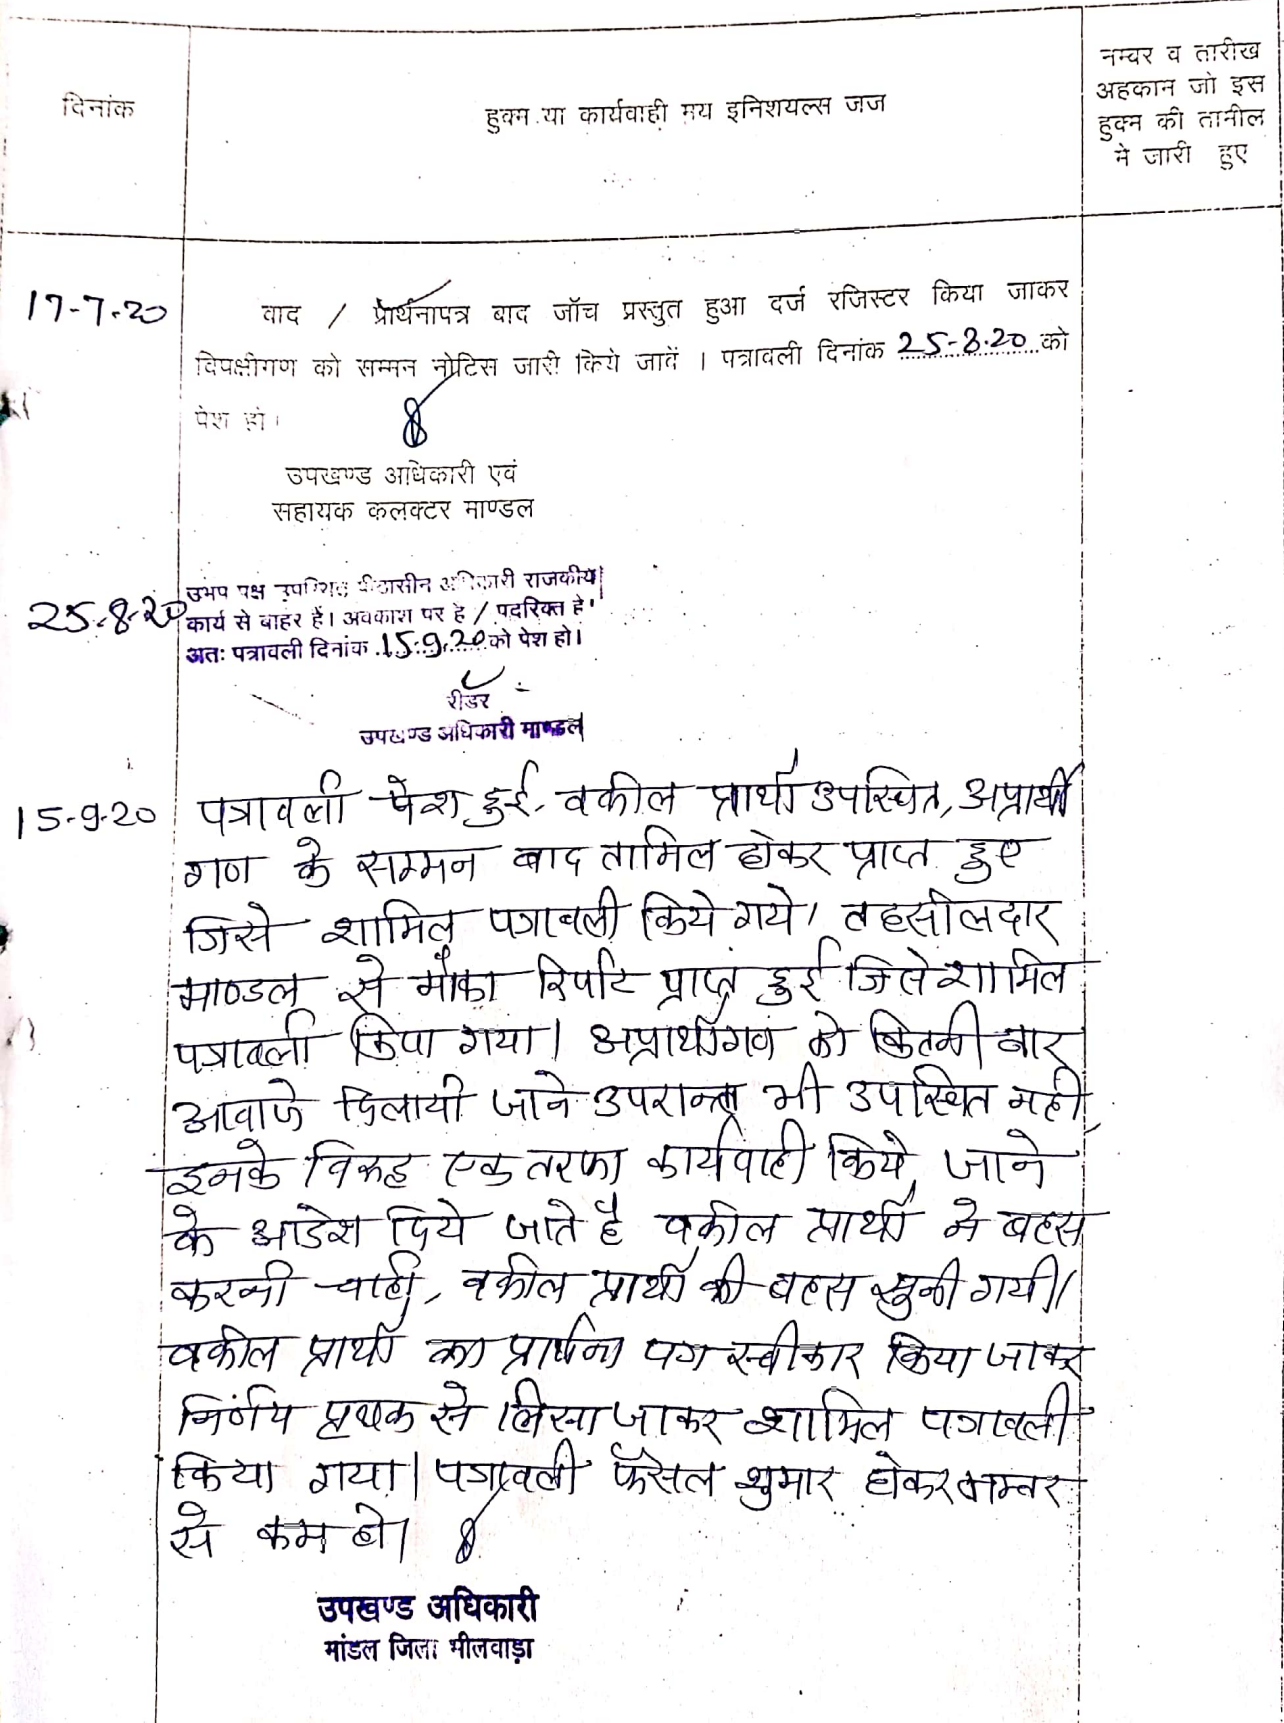 दिनांक
हुक्म या कार्यवाही मय इनिशयल्स जज
नम्बर व तारीख
अहकान जो इस
हुक्म की तामील
मे जारी हुए
17-7-20
वाद / प्रार्थनापत्र बाद जॉच प्रस्तुत हुआ दर्ज रजिस्टर किया जाकर
विपक्षीगण को सम्मन नोटिस जारी किये जावें । पत्रावली दिनांक 25-8-20 को
पेश हो।
उपखण्ड अधिकारी एवं
सहायक कलक्टर माण्डल
25-8-20
उभय पक्ष उपस्थित पीठासीन अधिकारी राजकीय
कार्य से बाहर हैं। अवकाश पर है / पदरिक्त है।
अतः पत्रावली दिनांक 15.9.20 को पेश हो।
रीडर
उपखण्ड अधिकारी माण्डल
15-9-20
पत्रावली पेश हुई, वकील प्रार्थी उपस्थित, अप्रार्थी
गण के सम्मन बाद तामिल होकर प्राप्त हुए
जिसे शामिल पत्रावली किये गये। तहसीलदार
माण्डल से मौका रिर्पोट प्राप्त हुई जिसे शामिल
पत्रावली किया गया। अप्रार्थीगण को कितनी बार
आवाजे दिलायी जाने उपरान्त भी उपस्थित नही,
इनके विरूद्ध एक तरफा कार्यवाही किये जाने
के आदेश दिये जाते है वकील प्रार्थी ने बहस
करनी चाही, वकील प्रार्थी की बहस सुनी गयी।
वकील प्रार्थी का प्रार्थना पत्र स्वीकार किया जाकर
निर्णय पृथक से लिखा जाकर शामिल पत्रावली
किया गया। पत्रावली फैसल शुमार होकर नम्बर
से कम हो।
उपखण्ड अधिकारी
मांडल जिला भीलवाड़ा